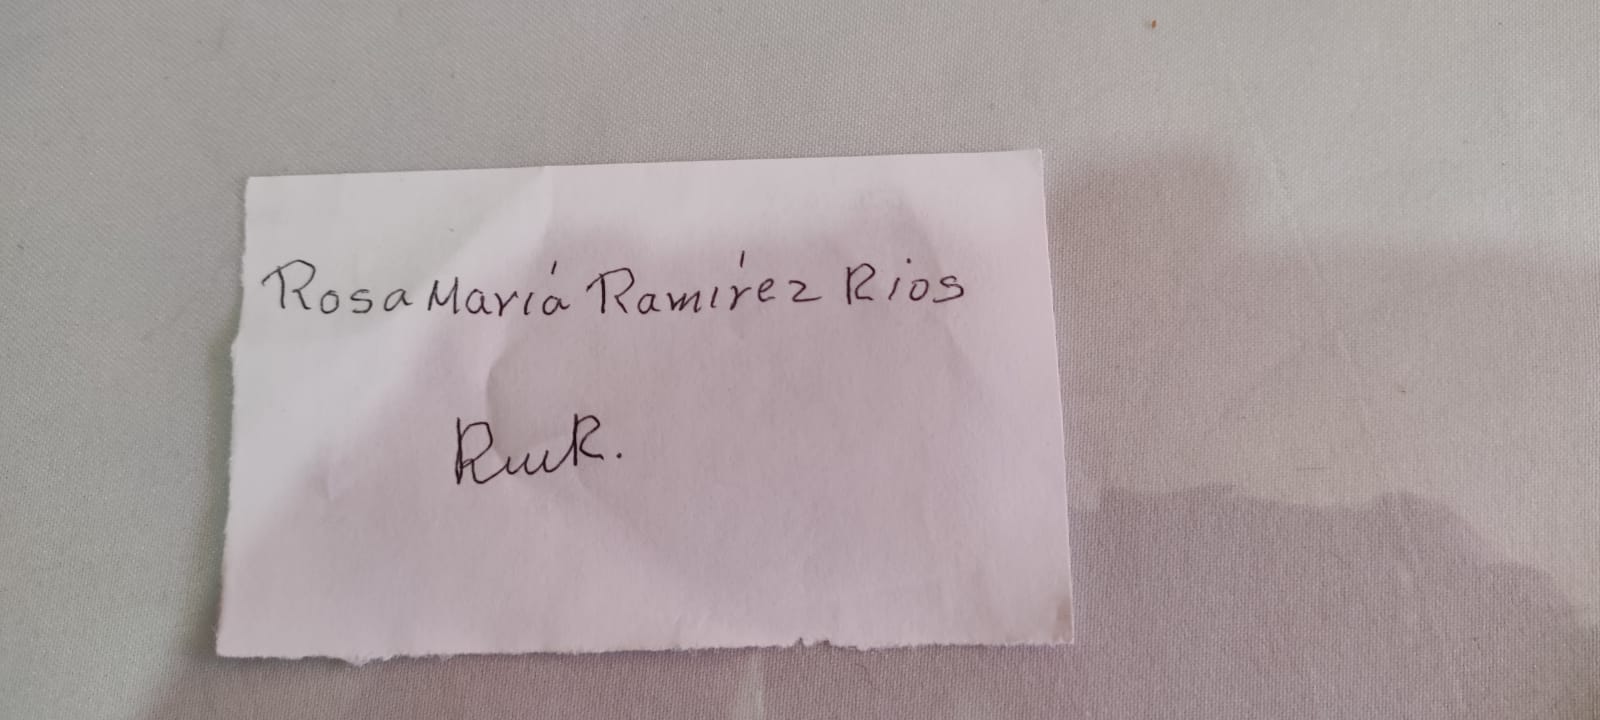 Rosa María Ramírez Rios
RmR.